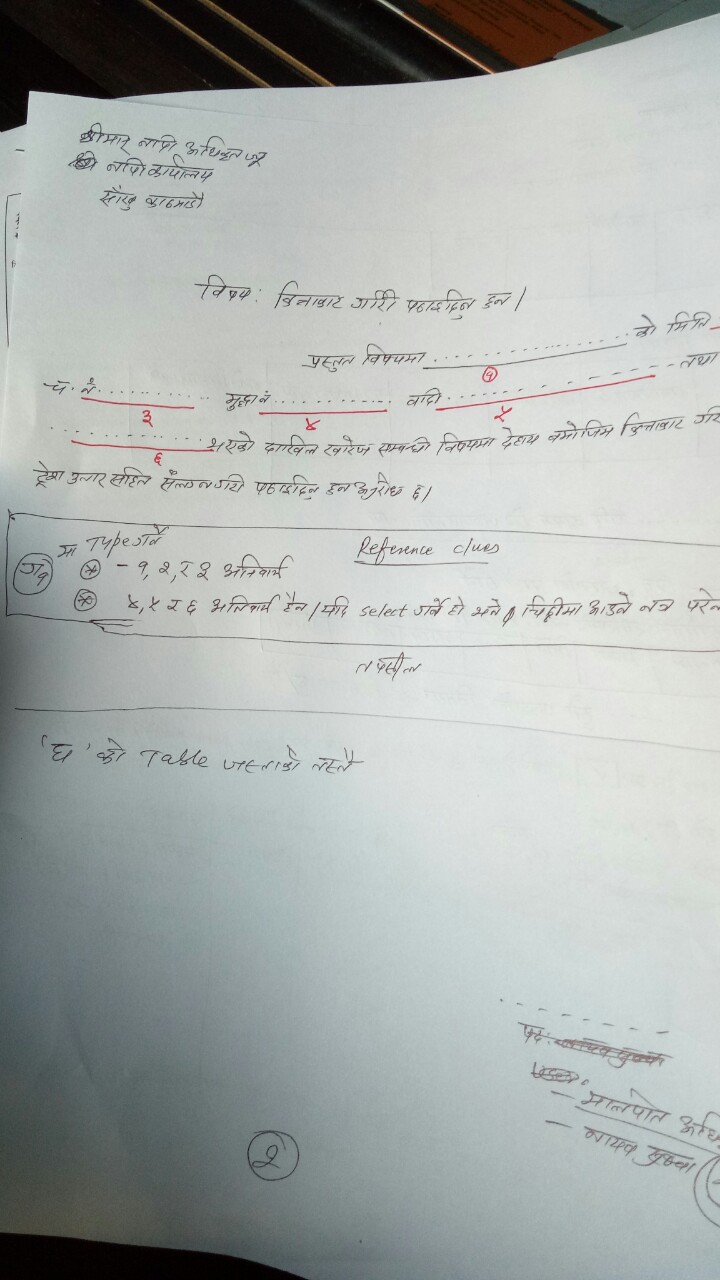 श्रीमान् नापी अधिकृत ज्यू
नापी कार्यालय
साँखु काठमाडौं
विषय: कित्ताकाट गरी पठाइदिनु हुन।
प्रस्तुत विषयमा .................... को मिति
१
च. नं. ............ मुद्दा नं ............ वादी .................... तथा
३ ४ ५
.................... भएको दाखिल खारेज सम्बन्धी विषयमा देहाय बमोजिम कित्ताकाट गरि
६
ट्रेश उतार सहित संलग्न गरी पठाइदिनु हुन अनुरोध छ।
ग१ मा Type गर्ने Reference clues
* - १, २, र ३ अनिवार्य
* ४, ५ र ६ अनिवार्य हैन। यदि select गर्ने हो भने चिठ्ठीमा आउने नत्र परेन
तपसील
'घ' को Table जस्ताको तस्तै
. - - - - - -
पद:
- मालपोत
- नायव सुब्बा
२